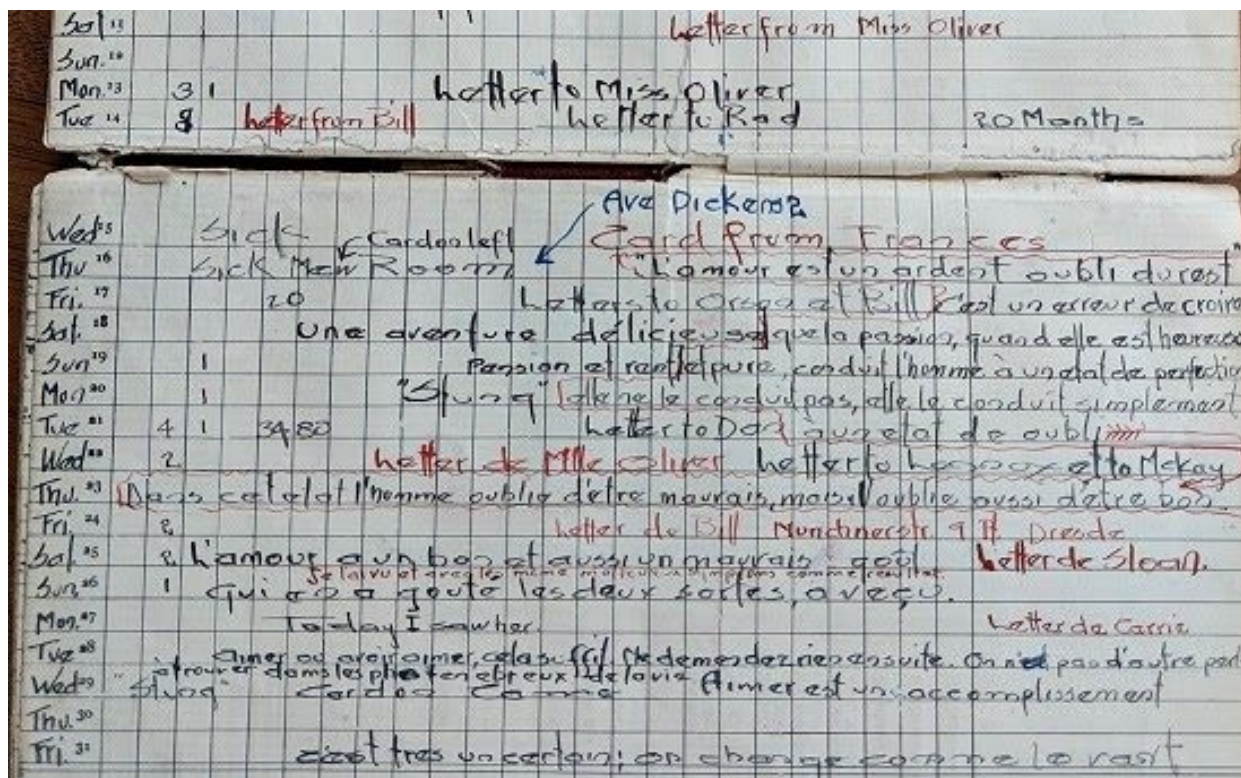 Sat 
Letter from Miss Oliver
Sun.
Mon. 13 3 1 Letter to Miss Oliver
Tue 14 8 Letter from Bill Letter to Rad 20 Months
Ave Dickens 2
Wed 15 Sick Cordon left Card from Frances
Thu 16 Sick New Room "L'amour est un ardent oubli du rest"
Fri. 17 20 Letters to et Bill c'est un erreur de croire
Sat. 18 Une aventure délicieuse que la passion, quand elle est heureuse
Sun 19 1 Passion et pure, conduit l'homme à un etat de perfection
Mon 20 1 "Stung" elle ne le conduit pas, elle le conduit simplement
Tue 21 4 1 3480 Letter to Dad à un etat de oubli
Wed 22 2 Letter de Mlle Oliver Letter to et to McKay
Thu. 23 Dans cet etat l'homme oublie d'être mauvais, mais il oublie aussi d'être bon.
Fri. 24 2 Letter de Bill 9 II Dresde
Sat. 25 2 L'amour a un bon et aussi un mauvais goût Letter de Sloan.
comme résultat
Sun 26 1 Qui en a goûté les deux sortes, a veçu.
Mon. 27 Today I saw her. Letter de Carrie
Tue 28 Aimer ou avoir aimer, cela suffit. Ne demendez rien ensuite. On n'a pas d'autre perl
à trouver dans les plis tenebreux de la vie
Wed 29 "Stung" Cordon Came Aimer est un accomplissement
Thu. 30
Fri. 31 c'est tres uncertain; on change comme le vent